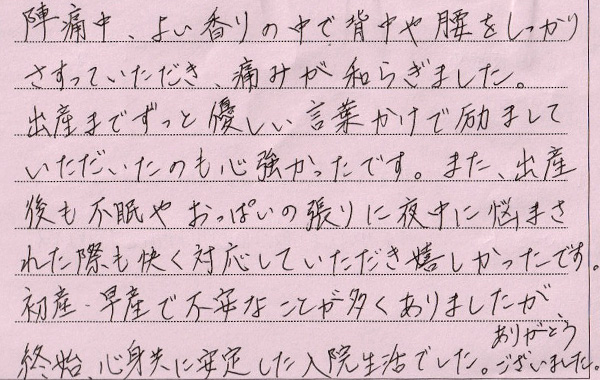 陣痛中、よい香りの中で背中や腰をしっかり
さすっていただき、痛みが和らぎました。
出産までずっと優しい言葉かけで励まして
いただいたのも心強かったです。また、出産
後も不眠やおっぱいの張りに夜中に悩まさ
れた際も快く対応していただき嬉しかったです。
初産・早産で不安なことが多くありましたが、
終始、心身共に安定した入院生活でした。ありがとう
ございました。